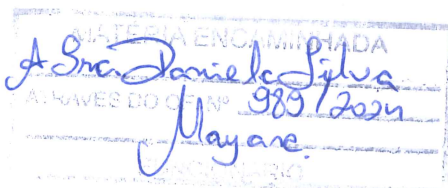 MATÉRIA ENCAMINHADA
A Sra Daniela Silva
ATRAVÉS DO OF. Nº 989/2024
Mayane.